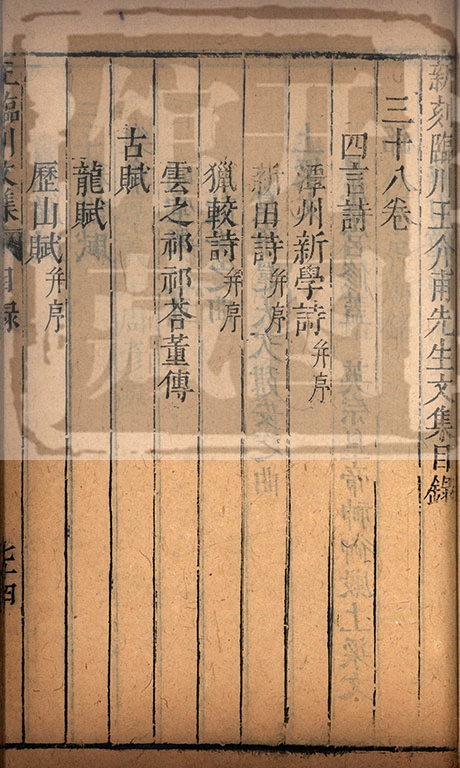 新刻臨川王介甫先生文集目錄
三十八卷
四言詩
潭州新學詩并序
新田詩并序
獵較詩并序
雲之祁祁荅董傳
古賦
龍賦
歷山賦并序
王臨川文集 目録 七十四